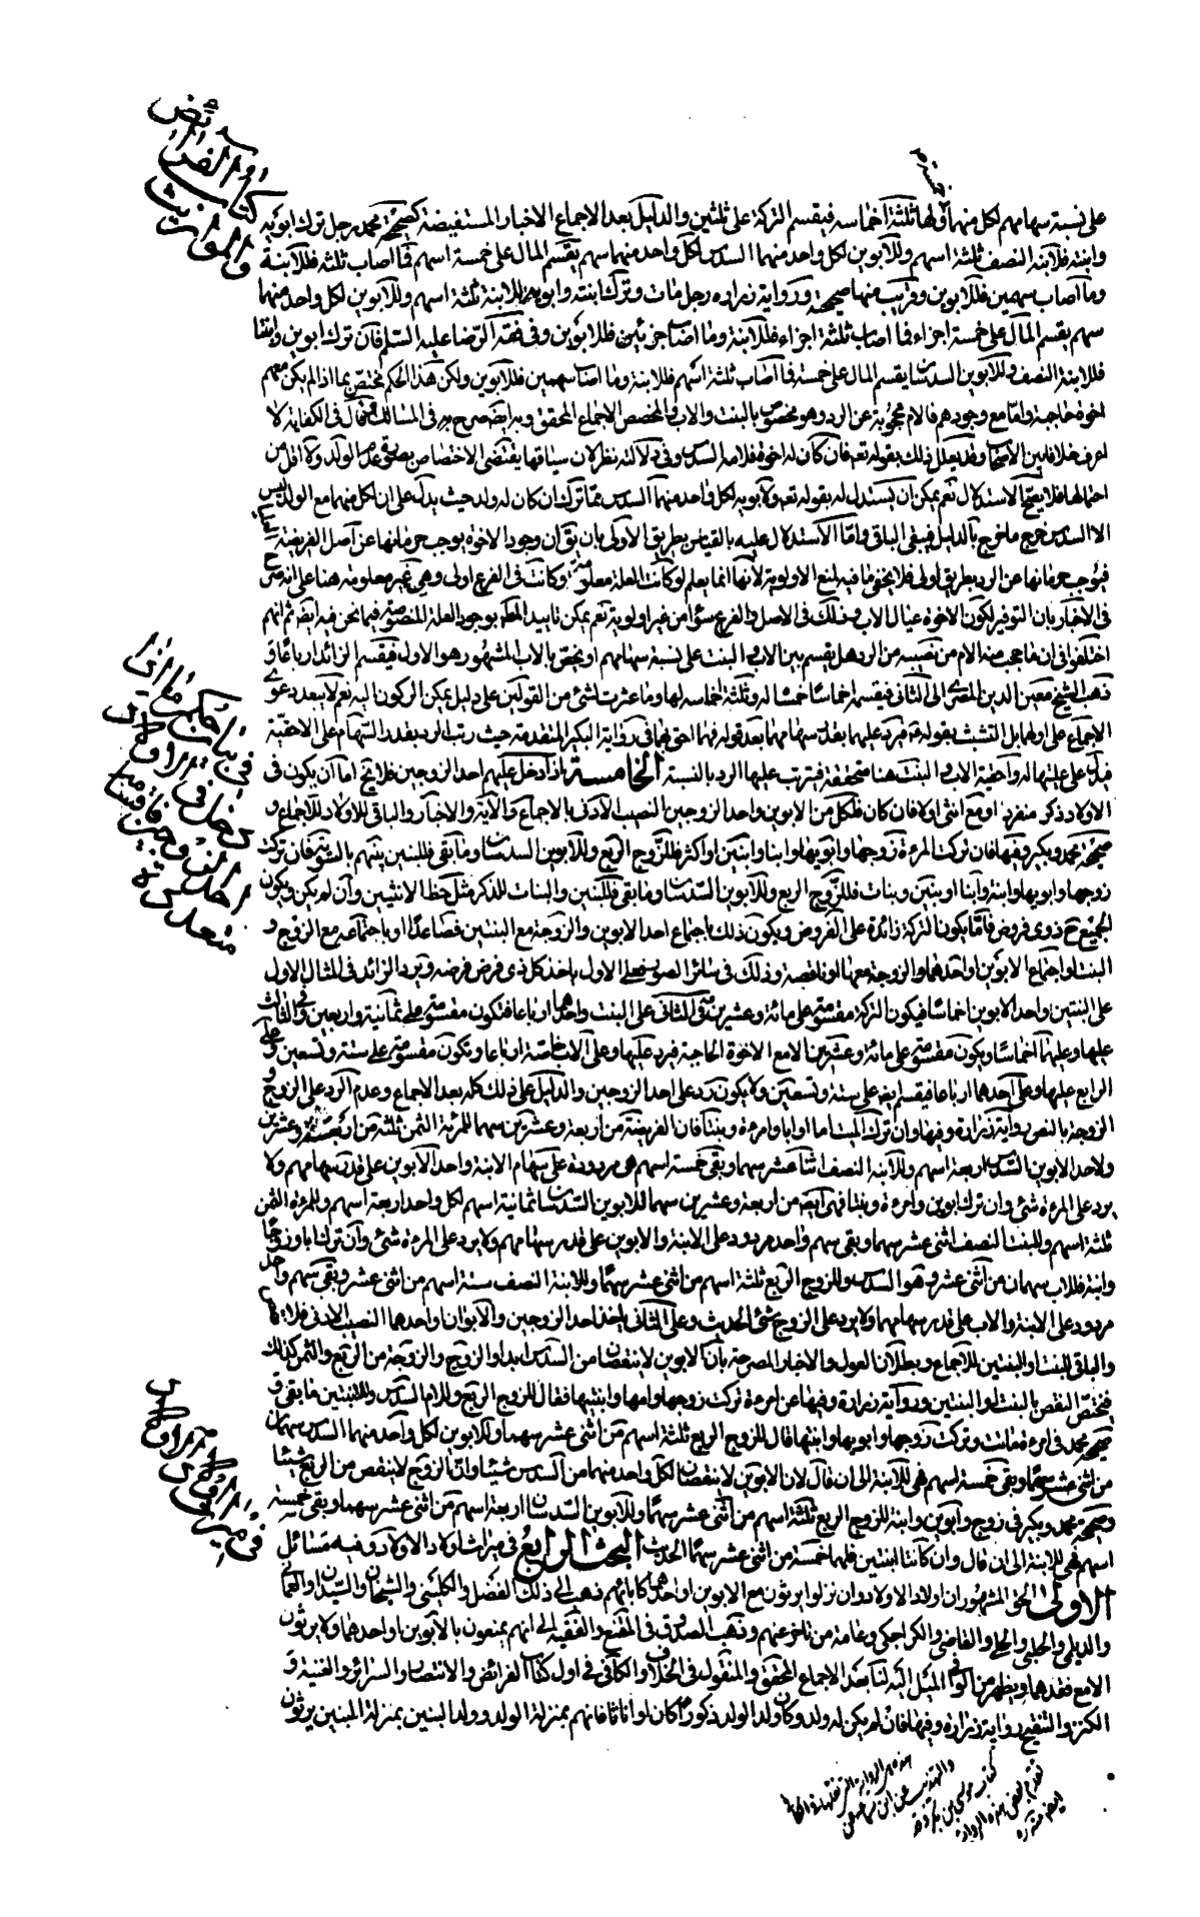 كتاب الفرائض
والمواريث
على نسبة سهامهم لكل منهما ولها ثلثة اخماسه فيقسم التركة على ثلثين والدليل بعد الاجماع الاخبار المستفيضة كصحيحة محمد رجل ترك ابويه
وابنته فلابنته النصف ثلثة اسهم وللابوين لكل واحد منهما السدس لكل واحد منهما سهم يقسم المال على خمسة اسهم فما اصاب ثلثه فللابنة
وما اصاب سهمين فللابوين وقريب منها صحيحته ورواية زرارة رجل مات وترك ابنته وابويه للابنة ثلثة اسهم وللابوين لكل واحد منهما
سهم يقسم المال على خمسة اجزاء فما اصاب ثلثة اجزاء فللابنة وما اصاب جزئين فللابوين وفي فقه الرضا عليه السلم فان ترك ابوين وابنة
فللابنة النصف وللابوين السدسان يقسم المال على خمسة فما اصاب ثلثة اسهم فللابنة وما اصاب سهمين فللابوين ولكن هذا الحكم مختص بما اذا لم يكن معهم
اخوة حاجبة واما مع وجودهم فالام محجوبة عن الرد وهو مخصوص بالبنت والاب والمخصص الاجماع المحقق وبه صرح في المسالك فقال في الكفاية لا
اعرف خلافا بين الاصحاب وقد يعلل ذلك بقوله تعه فان كان له اخوة فلامه السدس وفي دلالته نظر لان سياقها يقتضي الاختصاص بصورة عدم الولد ولا اقل من
احتمالها فلا يصح الاستدلال نعم يمكن ان يستدل له بقوله تعه ولابويه لكل واحد منهما السدس مما ترك ان كان له ولد حيث يدل على ان لكل منهما مع الولد ليس
الا السدس خرج ما خرج بالدليل فيبقى الباقي واما الاستدلال عليه بالقياس بطريق الاولى بان يق ان وجود الاخوة يوجب حرمانها عن اصل الفريضة
فيوجب حرمانها عن الرد بطريق اولى فلا يخفى ما فيه لمنع الاولوية لانها انما يعلم لو كانت العلة معلومة وكانت في الفرع اولى وهي غير معلومة هنا على انه صرح
في الاخبار بان التوفير لكون الاخوة عيال الاب وذلك في الاصل والفرع سواء من غير اولوية نعم يمكن تاييد الحكم بوجود العلة المنصوصة فيما نحن فيه ايضا ثم انهم
اختلفوا في ان ما يحجب منه الام من نصيبه من الرد هل يقسم بين الاب والبنت على نسبة سهامهم او يختص بالاب المشهور هو الاول فيقسم الزائد ارباعا و
ذهب الشيخ معين الدين المصري الى الثاني فيقسم اخماسا خمسا له وثلثة اخماسه لها وما عثرت لشئ من القولين على دليل يمكن الركون اليه نعم لا يبعد دعوى
الاجماع على اولهما بل التشبث بقوله فيرد عليهما بقدر سهامهما بعد قوله فهما احق بهما في رواية البكير المتقدمة حيث رتب الرد بقدر السهام على الاحقية
فيدل على عليتها له واحقية الاب والبنت هنا متحققة فيترتب عليها الرد بالنسبة الخامسة اذا دخل عليهم احد الزوجين فلا يخ اما ان يكون في
الاولاد ذكر منفرد او مع انثى او لا فان كان فلكل من الابوين واحد الزوجين النصيب الادنى بالاجماع والآية والاخبار والباقي للاولاد للاجماع و
صحيحة محمد وبكير وفيها فان تركت المرءة زوجها وابويها وابنا وابنين او اكثر فللزوج الربع وللابوين السدسان وما بقي فللبنين بينهم بالسوية فان تركت
زوجها وابويها وابنة وابنا او بنين وبنات فللزوج الربع وللابوين السدسان وما بقي فللبنين والبنات للذكر مثل حظ الانثيين وان لم يكن ويكون
الجميع ح ذوي فروض فاما يكون التركة زائدة على الفروض ويكون ذلك باجتماع احد الابوين والزوجة مع البنتين فصاعدا او باجتماعه مع الزوج و
البنت او اجتماع الابوين او احدهما والزوجة معها او ناقصة وذلك في سائر الصور فعلى الاول ياخذ كل ذي فرض فرضه ويرد الزائد في المثال الاول
على البنتين واحد الابوين اخماسا فيكون التركة مقسومة على مائة وعشرين وفي الثاني على البنت واحدهما ارباعا فتكون مقسومة على ثمانية واربعين وفي الثالث
عليها وعليهما اخماسا ويكون مقسومة على مائة وعشرين الا مع الاخوة الحاجبة فيرد عليها وعلى الاب خاصة ارباعا وتكون مقسومة على ستة وتسعين وعلى
الرابع عليها وعلى احدهما ارباعا فيقسم ايضا على ستة وتسعين ولا يكون رد على احد الزوجين والدليل على ذلك كله بعد الاجماع وعدم الرد على الزوج و
الزوجة بالنص رواية زرارة وفيها وان ترك الميت اما او ابا وامرءة وبنتا فان الفريضة من اربعة وعشرين سهما للمرئة الثمن ثلثة من اربعة وعشرين
ولاحد الابوين السدس اربعة اسهم وللابنة النصف اثنا عشر سهما وبقي خمسة اسهم هي مردودة على سهام الابنة واحد الابوين على قدر سهامهم ولا
يرد على المرءة شئ وان ترك ابوين وامرءة وبنتا فهي ايضا من اربعة وعشرين سهما للابوين السدسان ثمانية اسهم لكل واحد اربعة اسهم وللمرءة الثمن
ثلثة اسهم وللبنت النصف اثنى عشر سهما وبقي سهم واحد مردود على الابنة والابوين على قدر سهامهم ولا يرد على المرءة شئ وان ترك ابا وزوجا
وابنة فللاب سهمان من اثنى عشر وهو السدس وللزوج الربع ثلثة اسهم من اثنى عشر سهما وللابنة النصف ستة اسهم من اثنى عشر وبقي سهم واحد
مردود على الابنة والاب على قدر سهامهما ولا يرد على الزوج شئ الحديث وعلى الثاني ياخذ احد الزوجين والابوان او احدهما النصيب الادنى
والباقي للبنت او البنتين للاجماع وبطلان العول والاخبار المصرحة بان الابوين لا ينقصان من السدس ابدا والزوج والزوجة من الربع والثمن كذلك
فيختص النقص بالبنت او البنتين ورواية زرارة وفيها عن امرءة تركت زوجها وامها وابنتيها فقال للزوج الربع وللام السدس وللابنتين ما بقي و
صحيحة محمد في امرءة ماتت وتركت زوجها وابويها وابنتها قال للزوج الربع ثلثة اسهم من اثنى عشر سهما وللابوين لكل واحد منهما السدس سهمان
من اثنى عشر سهما وبقي خمسة اسهم فهي للابنة الى ان قال لان الابوين لا ينقصان لكل واحد منهما من السدس شيئا وان الزوج لا ينقص من الربع شيئا
وصحيحة محمد وبكير في زوج وابوين وابنة للزوج الربع ثلثة اسهم من اثنى عشر سهما وللابوين السدسان اربعة اسهم من اثنى عشر سهما وبقي خمسة
اسهم فهي للابنة الى ان قال وان كانتا ابنتين فلهما خمسة من اثنى عشر سهما الحديث البحث الرابع في ميراث اولاد الاولاد وفيه مسائل
الاولى الحق المشهور ان اولاد الاولاد وان نزلوا يرثون مع الابوين او احدهما كابائهم ذهب الى ذلك الفضل والكليني والشيخان والسيدان والعماني
والديلمي والحلبي والحلي والقاضي والكراجكي وعامة من تاخر عنهم وذهب الصدوق في المقنع والفقيه الى انهم يمنعون بالابوين او احدهما ولا يرثون
الا مع فقدهما ويظهر من الوافي الميل اليه لنا بعد الاجماع المحقق والمنقول في الخلاف والكافي في اول كتاب الفرائض والانتصار والسرائر والغنية و
الكنز والتنقيح رواية زرارة وفيها فان لم يكن له ولد وكان ولد الولد ذكورا كان او اناثا فانهم بمنزلة الولد وولد البنين بمنزلة البنين يرثون
في بيان حكم ما اذا
دخل في الاولاد
احد الزوجين
في ميراث اولاد
الاولاد